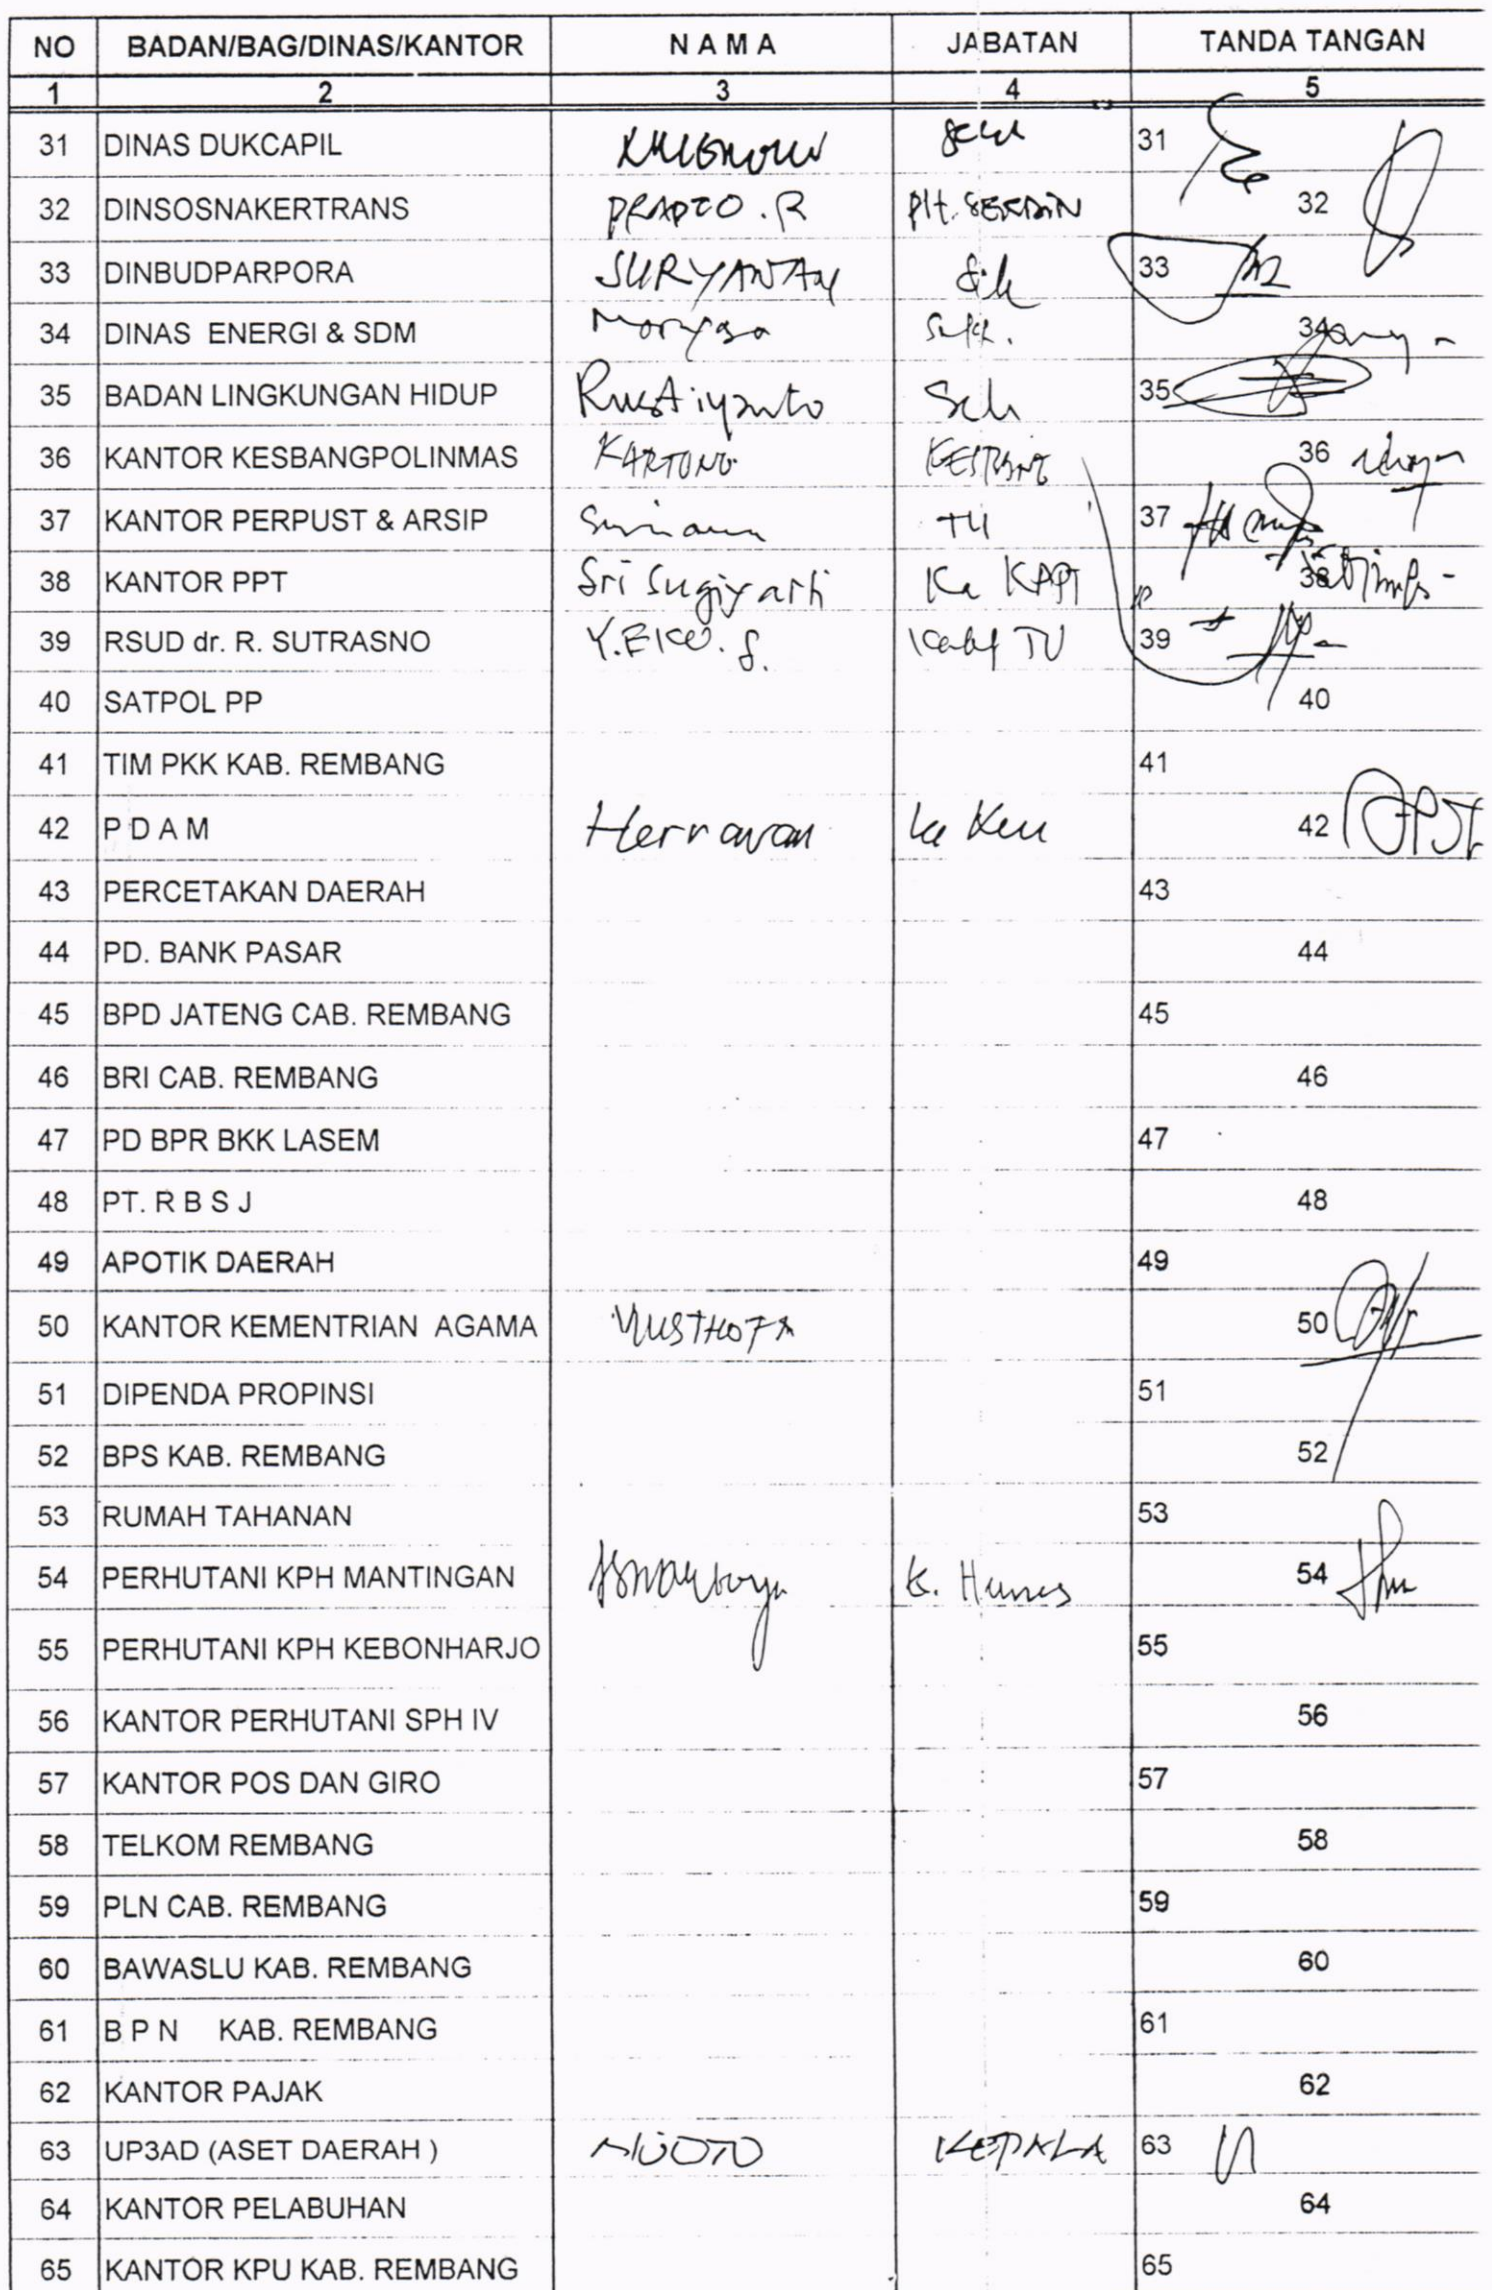 NO BADAN/BAG/DINAS/KANTOR N A M A JABATAN TANDA TANGAN
1 2 3 4 5
31 DINAS DUKCAPIL 31
32 DINSOSNAKERTRANS PRAPTO . R Plt. SEKDIN 32
33 DINBUDPARPORA SURYANTAN 33
34 DINAS ENERGI & SDM 34
35 BADAN LINGKUNGAN HIDUP Rustiyanto Sek 35
36 KANTOR KESBANGPOLINMAS KARTONO 36
37 KANTOR PERPUST & ARSIP TU 37
38 KANTOR PPT Sri Sugiyarti Ka KPPT 38
39 RSUD dr. R. SUTRASNO Y. EKO. S. TU 39
40 SATPOL PP 40
41 TIM PKK KAB. REMBANG 41
42 P D A M Hernawan Ka Keu 42
43 PERCETAKAN DAERAH 43
44 PD. BANK PASAR 44
45 BPD JATENG CAB. REMBANG 45
46 BRI CAB. REMBANG 46
47 PD BPR BKK LASEM 47
48 PT. R B S J 48
49 APOTIK DAERAH 49
50 KANTOR KEMENTRIAN AGAMA MUSTHOFA 50
51 DIPENDA PROPINSI 51
52 BPS KAB. REMBANG 52
53 RUMAH TAHANAN 53
54 PERHUTANI KPH MANTINGAN 54
55 PERHUTANI KPH KEBONHARJO 55
56 KANTOR PERHUTANI SPH IV 56
57 KANTOR POS DAN GIRO 57
58 TELKOM REMBANG 58
59 PLN CAB. REMBANG 59
60 BAWASLU KAB. REMBANG 60
61 B P N KAB. REMBANG 61
62 KANTOR PAJAK 62
63 UP3AD (ASET DAERAH ) KEPALA 63
64 KANTOR PELABUHAN 64
65 KANTOR KPU KAB. REMBANG 65